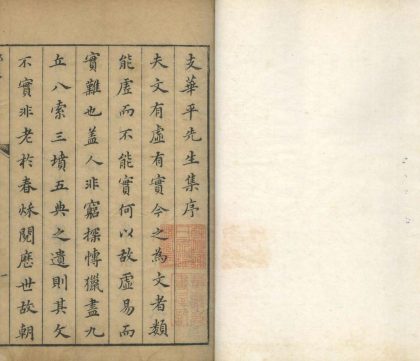 支華平先生集序
夫文有虛有實今之為文者類
能虛而不能實何以故虛易而
實難也蓋人非窮探愽獵盡九
丘八索三墳五典之遺則其文
不實非老於春秌閱歷世故朝